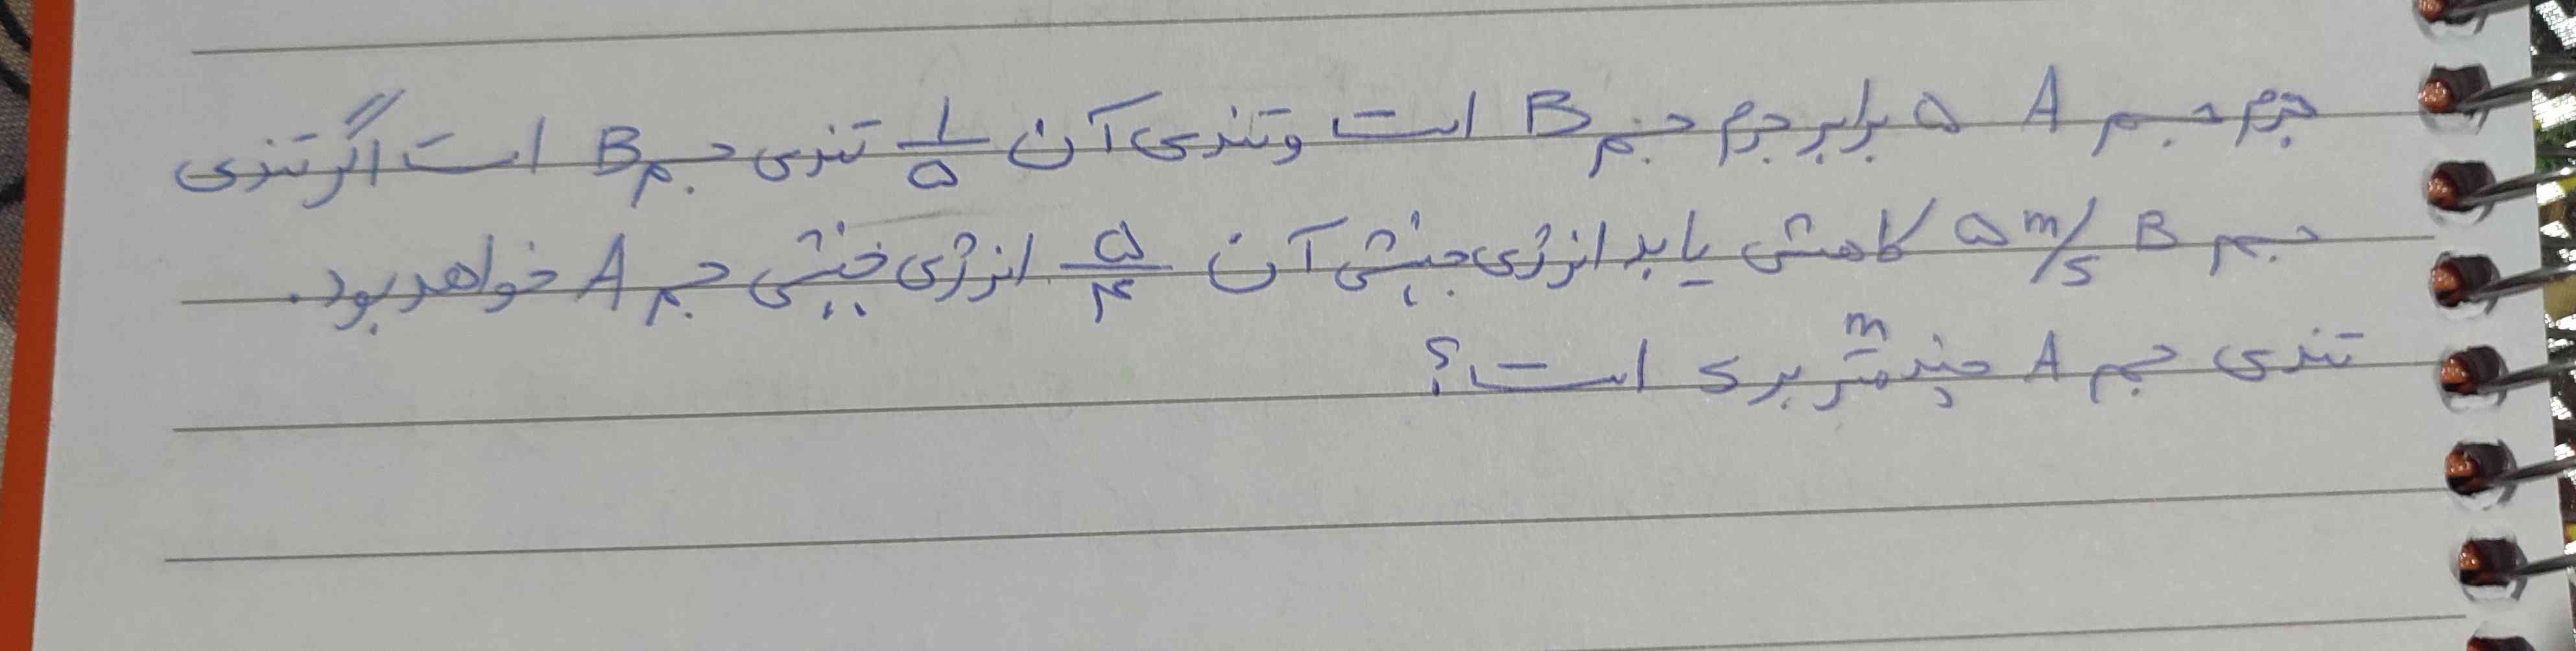 جرم جسم A ۵ برابر جرم جسم B است و تندی آن ۱/۵ تندی جسم B است اگر تندی
جسم B ۵ m/s کاهش یابد انرژی جنبشی آن ۵/۴ انرژی جنبشی جسم A خواهد بود.
تندی جسم A چند متر بر s است؟ m